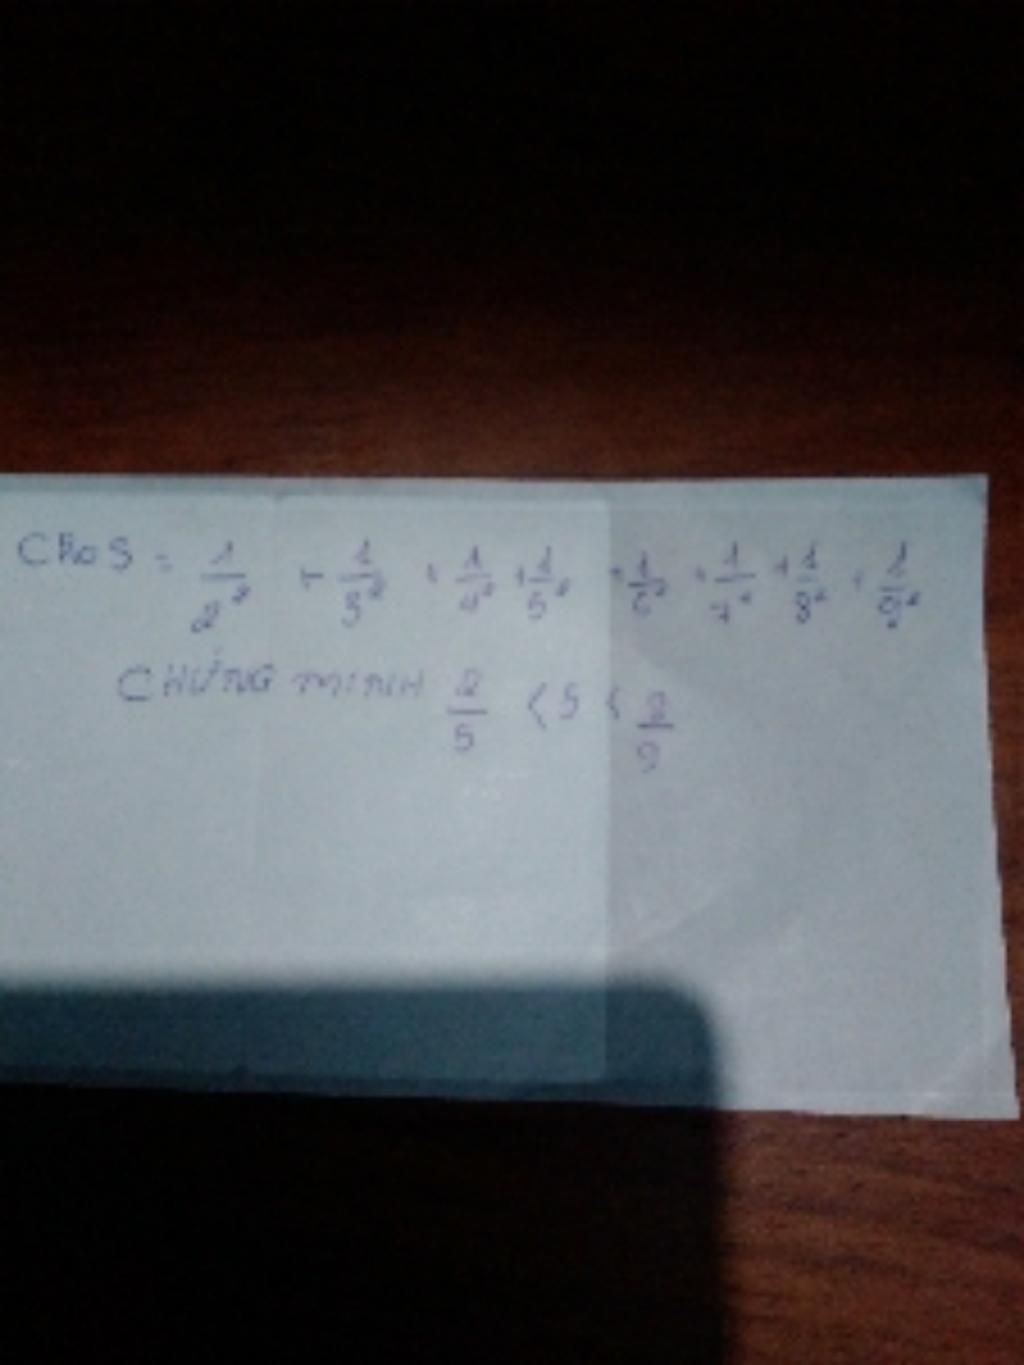 Cho S = 1/2² + 1/3² + 1/4² + 1/5² + 1/6² + 1/7² + 1/8² + 1/9²
CHỨNG MINH 2/5 < S <